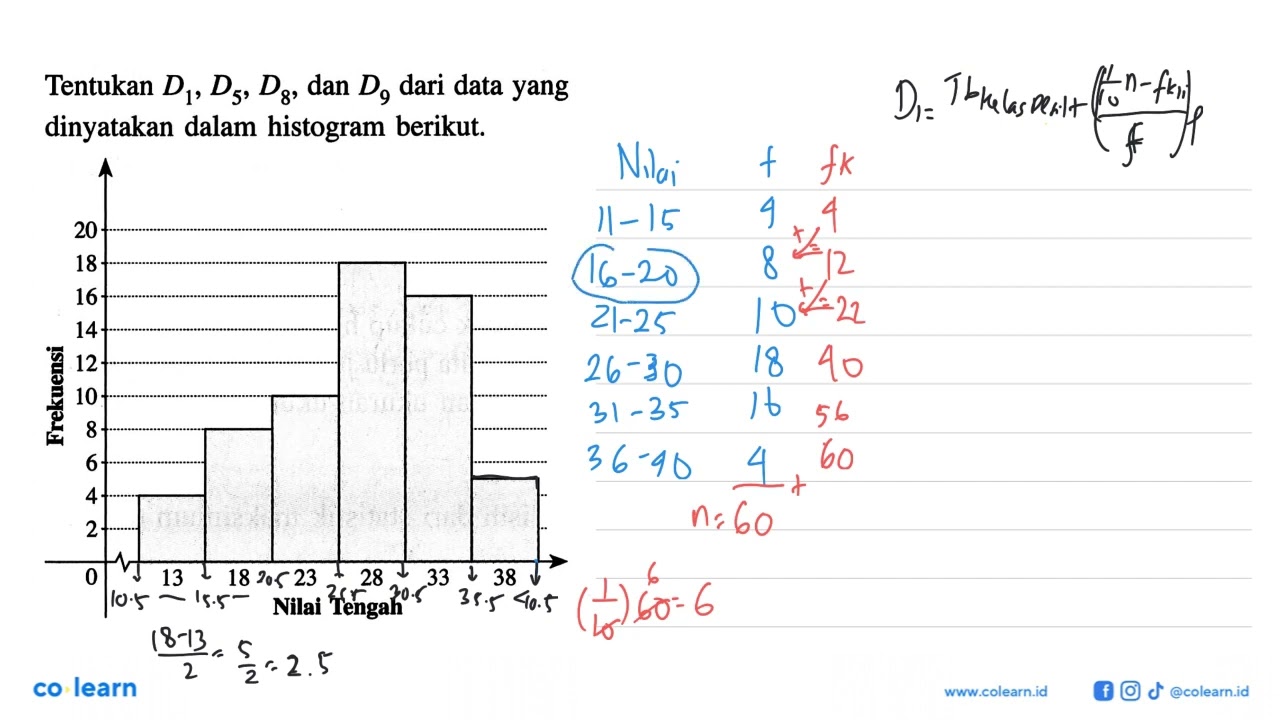 Tentukan D1, D5, D8, dan D9 dari data yang
dinyatakan dalam histogram berikut.
Frekuensi
20
18
16
14
12
10
8
6
4
2
0
13 18 23 28 33 38
10.5 15.5 20.5 25.5 30.5 35.5 40.5
Nilai Tengah
(18-13)/2 = 5/2 = 2.5
D1 = Tb kelas
(1/10 n - fk
f
Nilai f fk
11-15 4 4
16-20 8 12
21-25 10 22
26-30 18 40
31-35 16 56
36-40 4 60
n = 60
(1/10) 60 = 6
6
+ =
+ =
+
co learn
www.colearn.id
@colearn.id